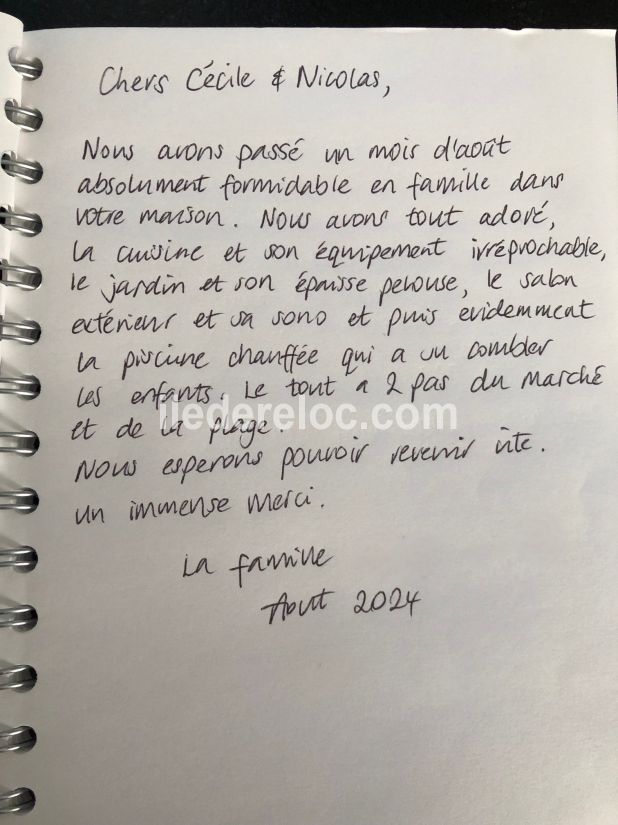 Chers Cécile & Nicolas,
Nous avons passé un mois d'août
absolument formidable en famille dans
votre maison. Nous avons tout adoré,
la cuisine et son équipement irréprochable,
le jardin et son épaisse pelouse, le salon
extérieur et sa sono et puis evidemment
la piscine chauffée qui a su combler
les enfants. Le tout a 2 pas du marché
iledereloc.com
et de la plage.
Nous esperons pouvoir revenir vite.
un immense merci.
La famille
Aout 2024